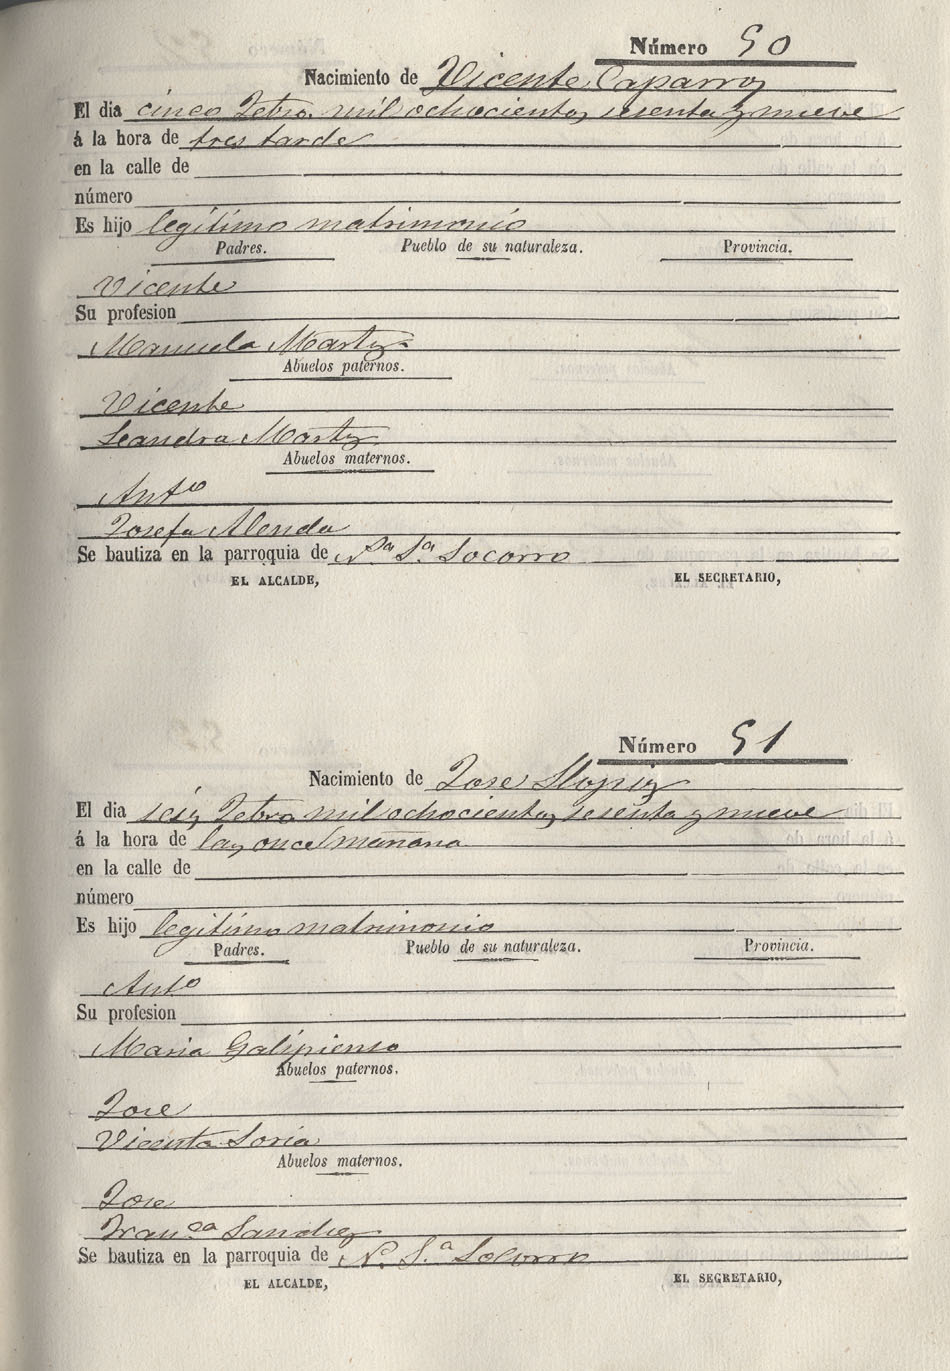 Número 50
Nacimiento de Vicente Caparros
El dia cinco Febro. mil ochocientos sesenta y nueve
á la hora de tres tarde
en la calle de
número
Es hijo legítimo matrimonio
Padres. Pueblo de su naturaleza. Provincia.
Vicente
Su profesion
Manuela Martz
Abuelos paternos.
Vicente
Leandra Martz
Abuelos maternos.
Anto
Josefa Alenda
Se bautiza en la parroquia de Na. Sa. Socorro
EL ALCALDE, EL SECRETARIO,
Número 51
Nacimiento de Jose Llopis
El dia seis Febro mil ochocientos sesenta y nueve
á la hora de las once mañana
en la calle de
número
Es hijo legítimo matrimonio
Padres. Pueblo de su naturaleza. Provincia.
Anto
Su profesion
Maria Galipienso
Abuelos paternos.
Jose
Vicenta Soria
Abuelos maternos.
Jose
Franca Sanchez
Se bautiza en la parroquia de N. S.a Socorro
EL ALCALDE, EL SECRETARIO,